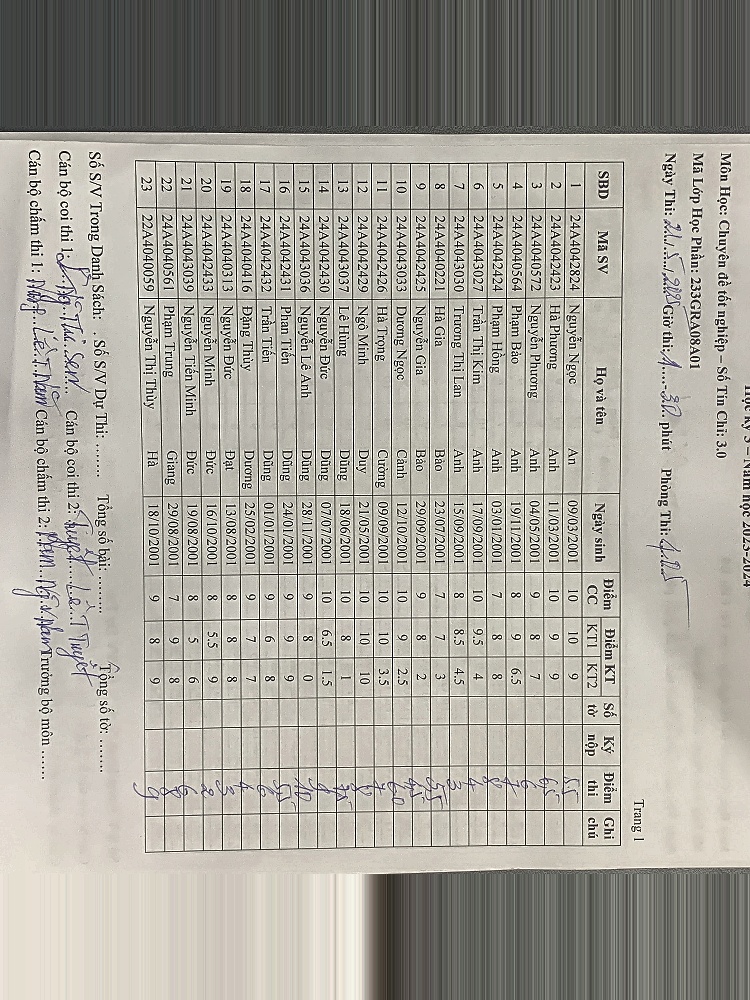 Học kỳ 3 – Năm học 2023-2024
Môn Học: Chuyên đề tốt nghiệp – Số Tín Chỉ: 3.0
Mã Lớp Học Phần: 233GRA08A01
Ngày Thi: Giờ thi: phút Phòng Thi:
Trang 1
SBD Mã SV Họ và tên Ngày sinh Điểm CC Điểm KT1 KT2 Số tờ Ký nộp Điểm thi Ghi chú
1 24A4042824 Nguyễn Ngọc An 09/03/2001 10 10 9 5.5
2 24A4042423 Hà Phương Anh 11/03/2001 10 9 9
3 24A4040572 Nguyễn Phương Anh 04/05/2001 9 8 7 6
4 24A4040564 Phạm Bảo Anh 19/11/2001 8 9 6.5 7
5 24A4042424 Phạm Hồng Anh 03/01/2001 7 8 8 8
6 24A4043027 Trần Thị Kim Anh 17/09/2001 10 9.5 4 4
7 24A4043030 Trương Thị Lan Anh 15/09/2001 8 8.5 4.5 3
8 24A4040221 Hà Gia Bảo 23/07/2001 7 7 3 5.5
9 24A4042425 Nguyễn Gia Bảo 29/09/2001 9 8 2
10 24A4043033 Dương Ngọc Cảnh 12/10/2001 10 9 2.5
11 24A4042426 Hà Trọng Cường 09/09/2001 10 10 3.5
12 24A4042429 Ngô Minh Duy 21/05/2001 10 10 10
13 24A4043037 Lê Hùng Dũng 18/06/2001 10 8 1
14 24A4042430 Nguyễn Đức Dũng 07/07/2001 10 6.5 1.5
15 24A4043036 Nguyễn Lê Anh Dũng 28/11/2001 9 8 0 10
16 24A4042431 Phan Tiến Dũng 24/01/2001 9 9 9
17 24A4042432 Trần Tiến Dũng 01/01/2001 9 6 8 6
18 24A4040416 Đặng Thùy Dương 25/02/2001 9 7 7 4
19 24A4040313 Nguyễn Đức Đạt 13/08/2001 8 8 8 3
20 24A4042433 Nguyễn Minh Đức 16/10/2001 8 5.5 9 2
21 24A4043039 Nguyễn Tiến Minh Đức 19/08/2001 8 5 6 6
22 24A4040561 Phạm Trung Giang 29/08/2001 7 9 8 8
23 22A4040059 Nguyễn Thị Thùy Hà 18/10/2001 9 8 9 9
Số S/V Trong Danh Sách: . Số S/V Dự Thi: ........ Tổng số bài: ......... Tổng số tờ: ........
Cán bộ coi thi 1: Cán bộ coi thi 2: Tuyết Lê.T.Tuyết
Cán bộ chấm thi 1: Cán bộ chấm thi 2: Trưởng bộ môn ......